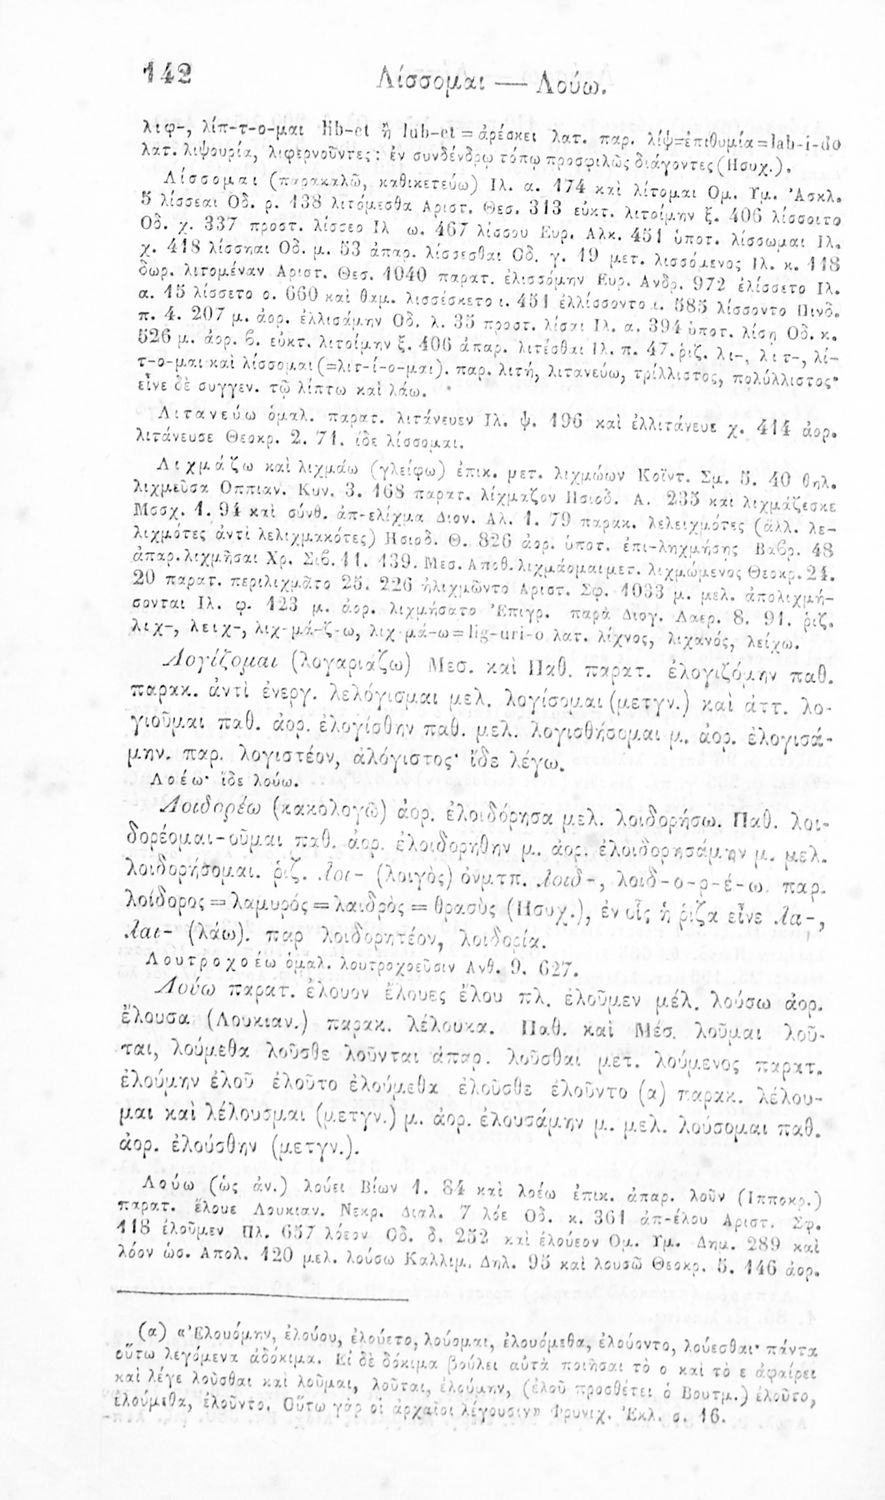 142 Λίσσομαι — Λούω.
λιφ-, λίπ-τ-ο-μαι lib-et ἢ lub-et = ἀρέσκει λατ. παρ. λίψ=ἐπιθυμία=lub-i-do
λατ. λιψουρία, λιφερνοῦντες: ἐν συνδένδρῳ τόπῳ προσφιλῶς διάγοντες (Ησυχ.).
Λίσσομαι (παρακαλῶ, καθικετεύω) Ιλ. α. 174 καὶ λίτομαι Ομ. Υμ. Ἀσκλ.
5 λίσσεαι Οδ. ρ. 138 λιτόμεσθα Αριστ. Θεσ. 313 εὐκτ. λιτοίμην ξ. 406 λίσσοιτο
Οδ. χ. 337 προστ. λίσσεο Ιλ ω. 467 λίσσου Ευρ. Αλκ. 451 ὑποτ. λίσσωμαι Ιλ.
χ. 418 λίσσηαι Οδ. μ. 53 ἀπαρ. λίσσεσθαι Οδ. γ. 19 μετ. λισσόμενος Ιλ. κ. 118
δωρ. λιτομέναν Αριστ. Θεσ. 1040 παρατ. ἐλισσόμην Ευρ. Ανδρ. 972 ἐλίσσετο Ιλ.
α. 15 λίσσετο ο. 660 καὶ θαμ. λισσέσκετο ι. 451 ἐλλίσσοντο ι. 585 λίσσοντο Πινδ.
π. 4. 207 μ. ἀορ. ἐλλισάμην Οδ. λ. 35 προστ. λίσαι Ιλ. α. 394 ὑποτ. λίσῃ Οδ. κ.
526 μ. ἀορ. β. εὐκτ. λιτοίμην ξ. 406 ἀπαρ. λιτέσθαι Ιλ. π. 47. ῥιζ. λι-, λιτ-, λί-
τ-ο-μαι καὶ λίσσομαι (=λιτ-ί-ο-μαι). παρ. λιτή, λιτανεύω, τρίλλιστος, πολύλλιστος·
εἶνε δὲ συγγεν. τῷ λίπτω καὶ λάω.
Λιτανεύω ὁμαλ. παρατ. λιτάνευεν Ιλ. ψ. 196 καὶ ἐλλιτάνευε χ. 414 ἀορ.
λιτάνευσε Θεοκρ. 2. 71. ἰδὲ λίσσομαι.
Λιχμάζω καὶ λιχμάω (γλείφω) ἐπικ. μετ. λιχμώων Κοϊντ. Σμ. 5. 40 θηλ.
λιχμεῦσα Οππιαν. Κυν. 3. 168 παρατ. λίχμαζον Ησιοδ. Α. 235 καὶ λιχμάζεσκε
Μοσχ. 1. 94 καὶ σύνθ. ἀπ-ελίχμα Διον. Αλ. 1. 79 παρακ. λελειχμότες (ἀλλ. λε-
λιχμότες ἀντὶ λελιχμακότες) Ησιοδ. Θ. 826 ἀορ. ὑποτ. ἐπι-ληχμήσῃς Βαβρ. 48
ἀπαρ. λιχμῆσαι Χρ. Σιβ. 11. 139. Μεσ. Αποθ. λιχμάομαι μετ. λιχμώμενος Θεοκρ. 24.
20 παρατ. περιλιχμᾶτο 25. 226 ἠλιχμῶντο Αριστ. Σφ. 1033 μ. μελ. ἀπολιχμή-
σονται Ιλ. φ. 123 μ. ἀορ. λιχμήσατο Ἐπιγρ. παρὰ Διογ. Λαερ. 8. 91. ῥιζ.
λιχ-, λειχ-, λιχ-μά-ζ-ω, λιχ-μά-ω = lig-uri-o λατ. λίχνος, λιχανός, λείχω.
Λογίζομαι (λογαριάζω) Μεσ. καὶ Παθ. παρατ. ἐλογιζόμην παθ.
παρακ. ἀντὶ ἐνεργ. λελόγισμαι μελ. λογίσομαι (μετγν.) καὶ ἀττ. λο-
γιοῦμαι παθ. ἀορ. ἐλογίσθην παθ. μελ. λογισθήσομαι μ. ἀορ. ἐλογισά-
μην. παρ. λογιστέον, ἀλόγιστος· ἴδε λέγω.
Λοέω· ἴδε λούω.
Λοιδορέω (κακολογῶ) ἀορ. ἐλοιδόρησα μελ. λοιδορήσω. Παθ. λοι-
δορέομαι-οῦμαι παθ. ἀορ. ἐλοιδορήθην μ. ἀορ. ἐλοιδορησάμην μ. μελ.
λοιδορήσομαι. ῥιζ. Λοι- (λοιγὸς) ὀνμτπ. Λοιδ-, λοιδ-ο-ρ-έ-ω. παρ.
λοίδορος = λαμυρός = λαιδρὸς = θρασὺς (Ησυχ.), ἐν οἷς ἡ ῥίζα εἶνε Λα-,
Λαι- (λάω). παρ λοιδορητέον, λοιδορία.
Λουτροχοέω ὁμαλ. λουτροχοεῦσιν Ανθ. 9. 627.
Λούω παρατ. ἔλουον ἔλουες ἔλου πλ. ἐλοῦμεν μέλ. λούσω ἀορ.
ἔλουσα (Λουκιαν.) παρακ. λέλουκα. Παθ. καὶ Μέσ. λοῦμαι λοῦ-
ται, λούμεθα λοῦσθε λοῦνται ἀπαρ. λοῦσθαι μετ. λούμενος παρατ.
ἐλούμην ἐλοῦ ἐλοῦτο ἐλούμεθα ἐλοῦσθε ἐλοῦντο (α) παρακ. λέλου-
μαι καὶ λέλουσμαι (μετγν.) μ. ἀορ. ἐλουσάμην μ. μελ. λούσομαι παθ.
ἀορ. ἐλούσθην (μετγν.).
Λούω (ὡς ἀν.) λούει Βίων 1. 84 καὶ λοέω ἐπικ. ἀπαρ. λοῦν (Ιπποκρ.)
παρατ. ἔλουε Λουκιαν. Νεκρ. Διαλ. 7 λόε Οδ. κ. 361 ἀπ-έλου Αριστ. Σφ.
118 ἐλοῦμεν Πλ. 657 λόεον Οδ. δ. 252 καὶ ἐλούεον Ομ. Υμ. Δημ. 289 καὶ
λόον ὡσ. Απολ. 120 μελ. λούσω Καλλιμ. Δηλ. 95 καὶ λουσῶ Θεοκρ. 5. 146 ἀορ.
(α) «Ἐλουόμην, ἐλούου, ἐλούετο, λούομαι, ἐλουόμεθα, ἐλούοντο, λούεσθαι· πάντα
οὕτω λεγόμενα ἀδόκιμα. Εἰ δὲ δόκιμα βούλει αὐτὰ ποιῆσαι τὸ ο καὶ τὸ ε ἀφαίρει
καὶ λέγε λοῦσθαι καὶ λοῦμαι, λοῦται, ἐλούμην, (ἐλοῦ προσθέτει ὁ Βουτμ.) ἐλοῦτο,
ἐλούμεθα, ἐλοῦντο. Οὕτω γὰρ οἱ ἀρχαῖοι λέγουσιν» Φρυνιχ. Ἐκλ. σ. 16.